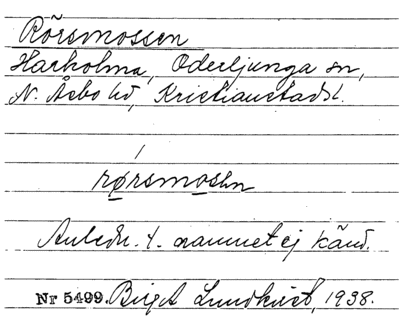 Rörsmossen
Harholma, Oderljunga sn,
N. Åsbo hd, Kristianstads l.
rørsmosen
Anledn. t. namnet ej känd.
Nr 5499. Birgit Lundkvist, 1938.